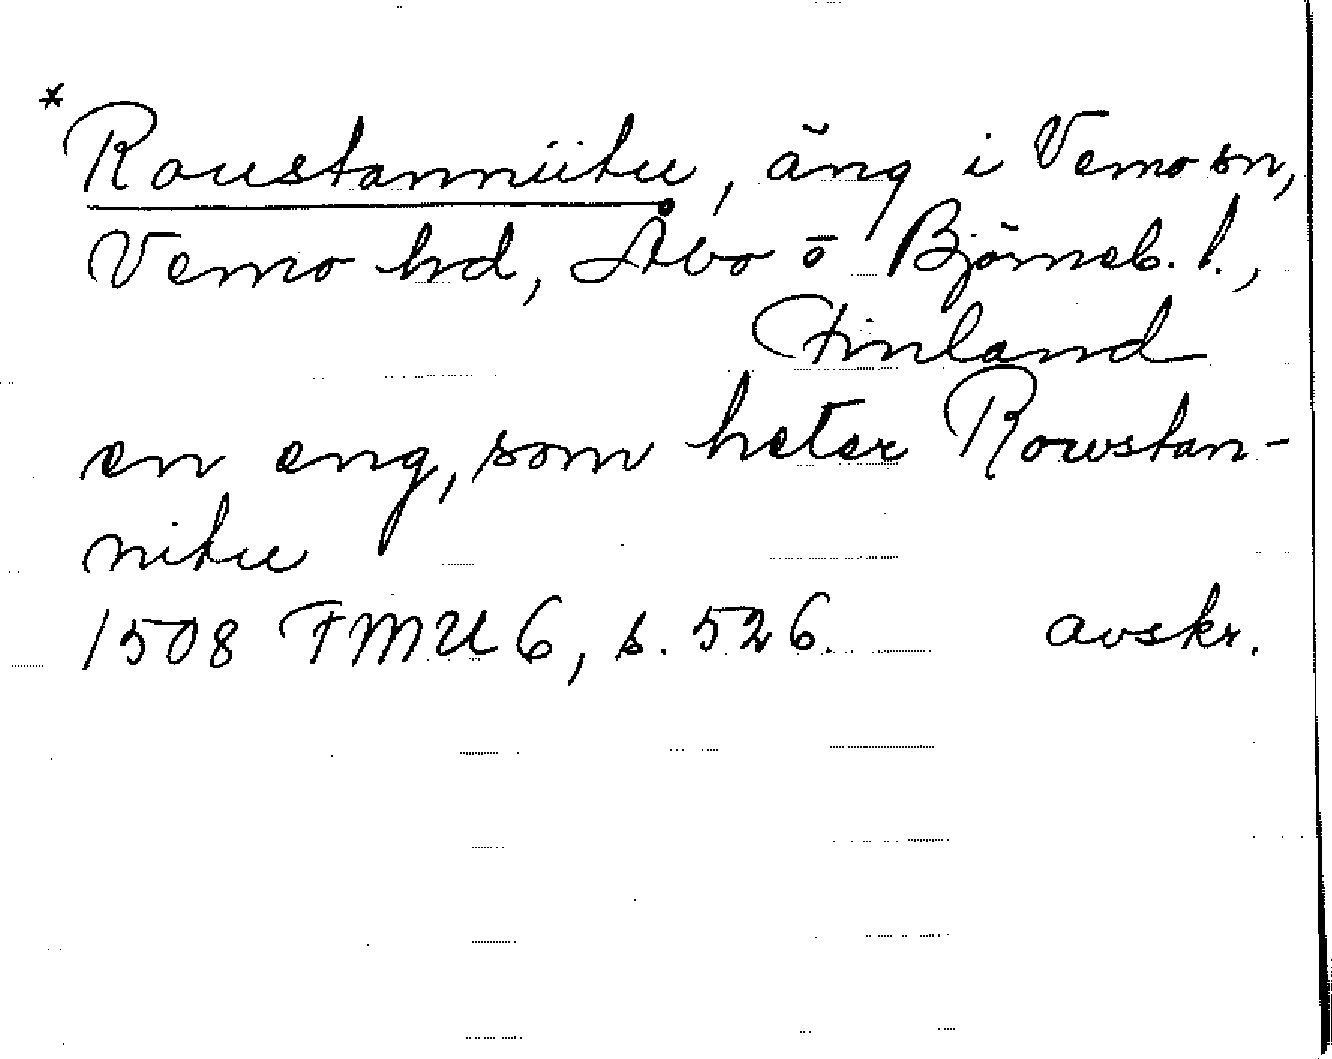 *Roustanniitu, äng i Vemo sn,
Vemo hd, Åbo o Björneb. l.,
Finland
en eng, som heter Rowstan-
nitu
1508 FMU 6, s. 526. avskr.